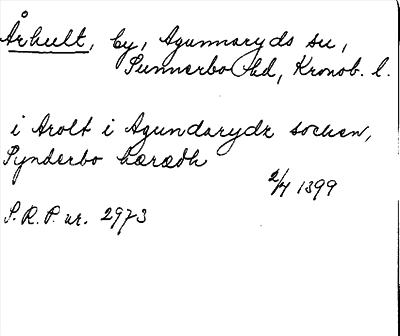 Århult, by, Agunnaryds sn,
Sunnerbo hd, Kronob. l.
i Arolt i Agundarydz sochen,
Synderbo häradh
2/4 1399
S.R.P. nr. 2973